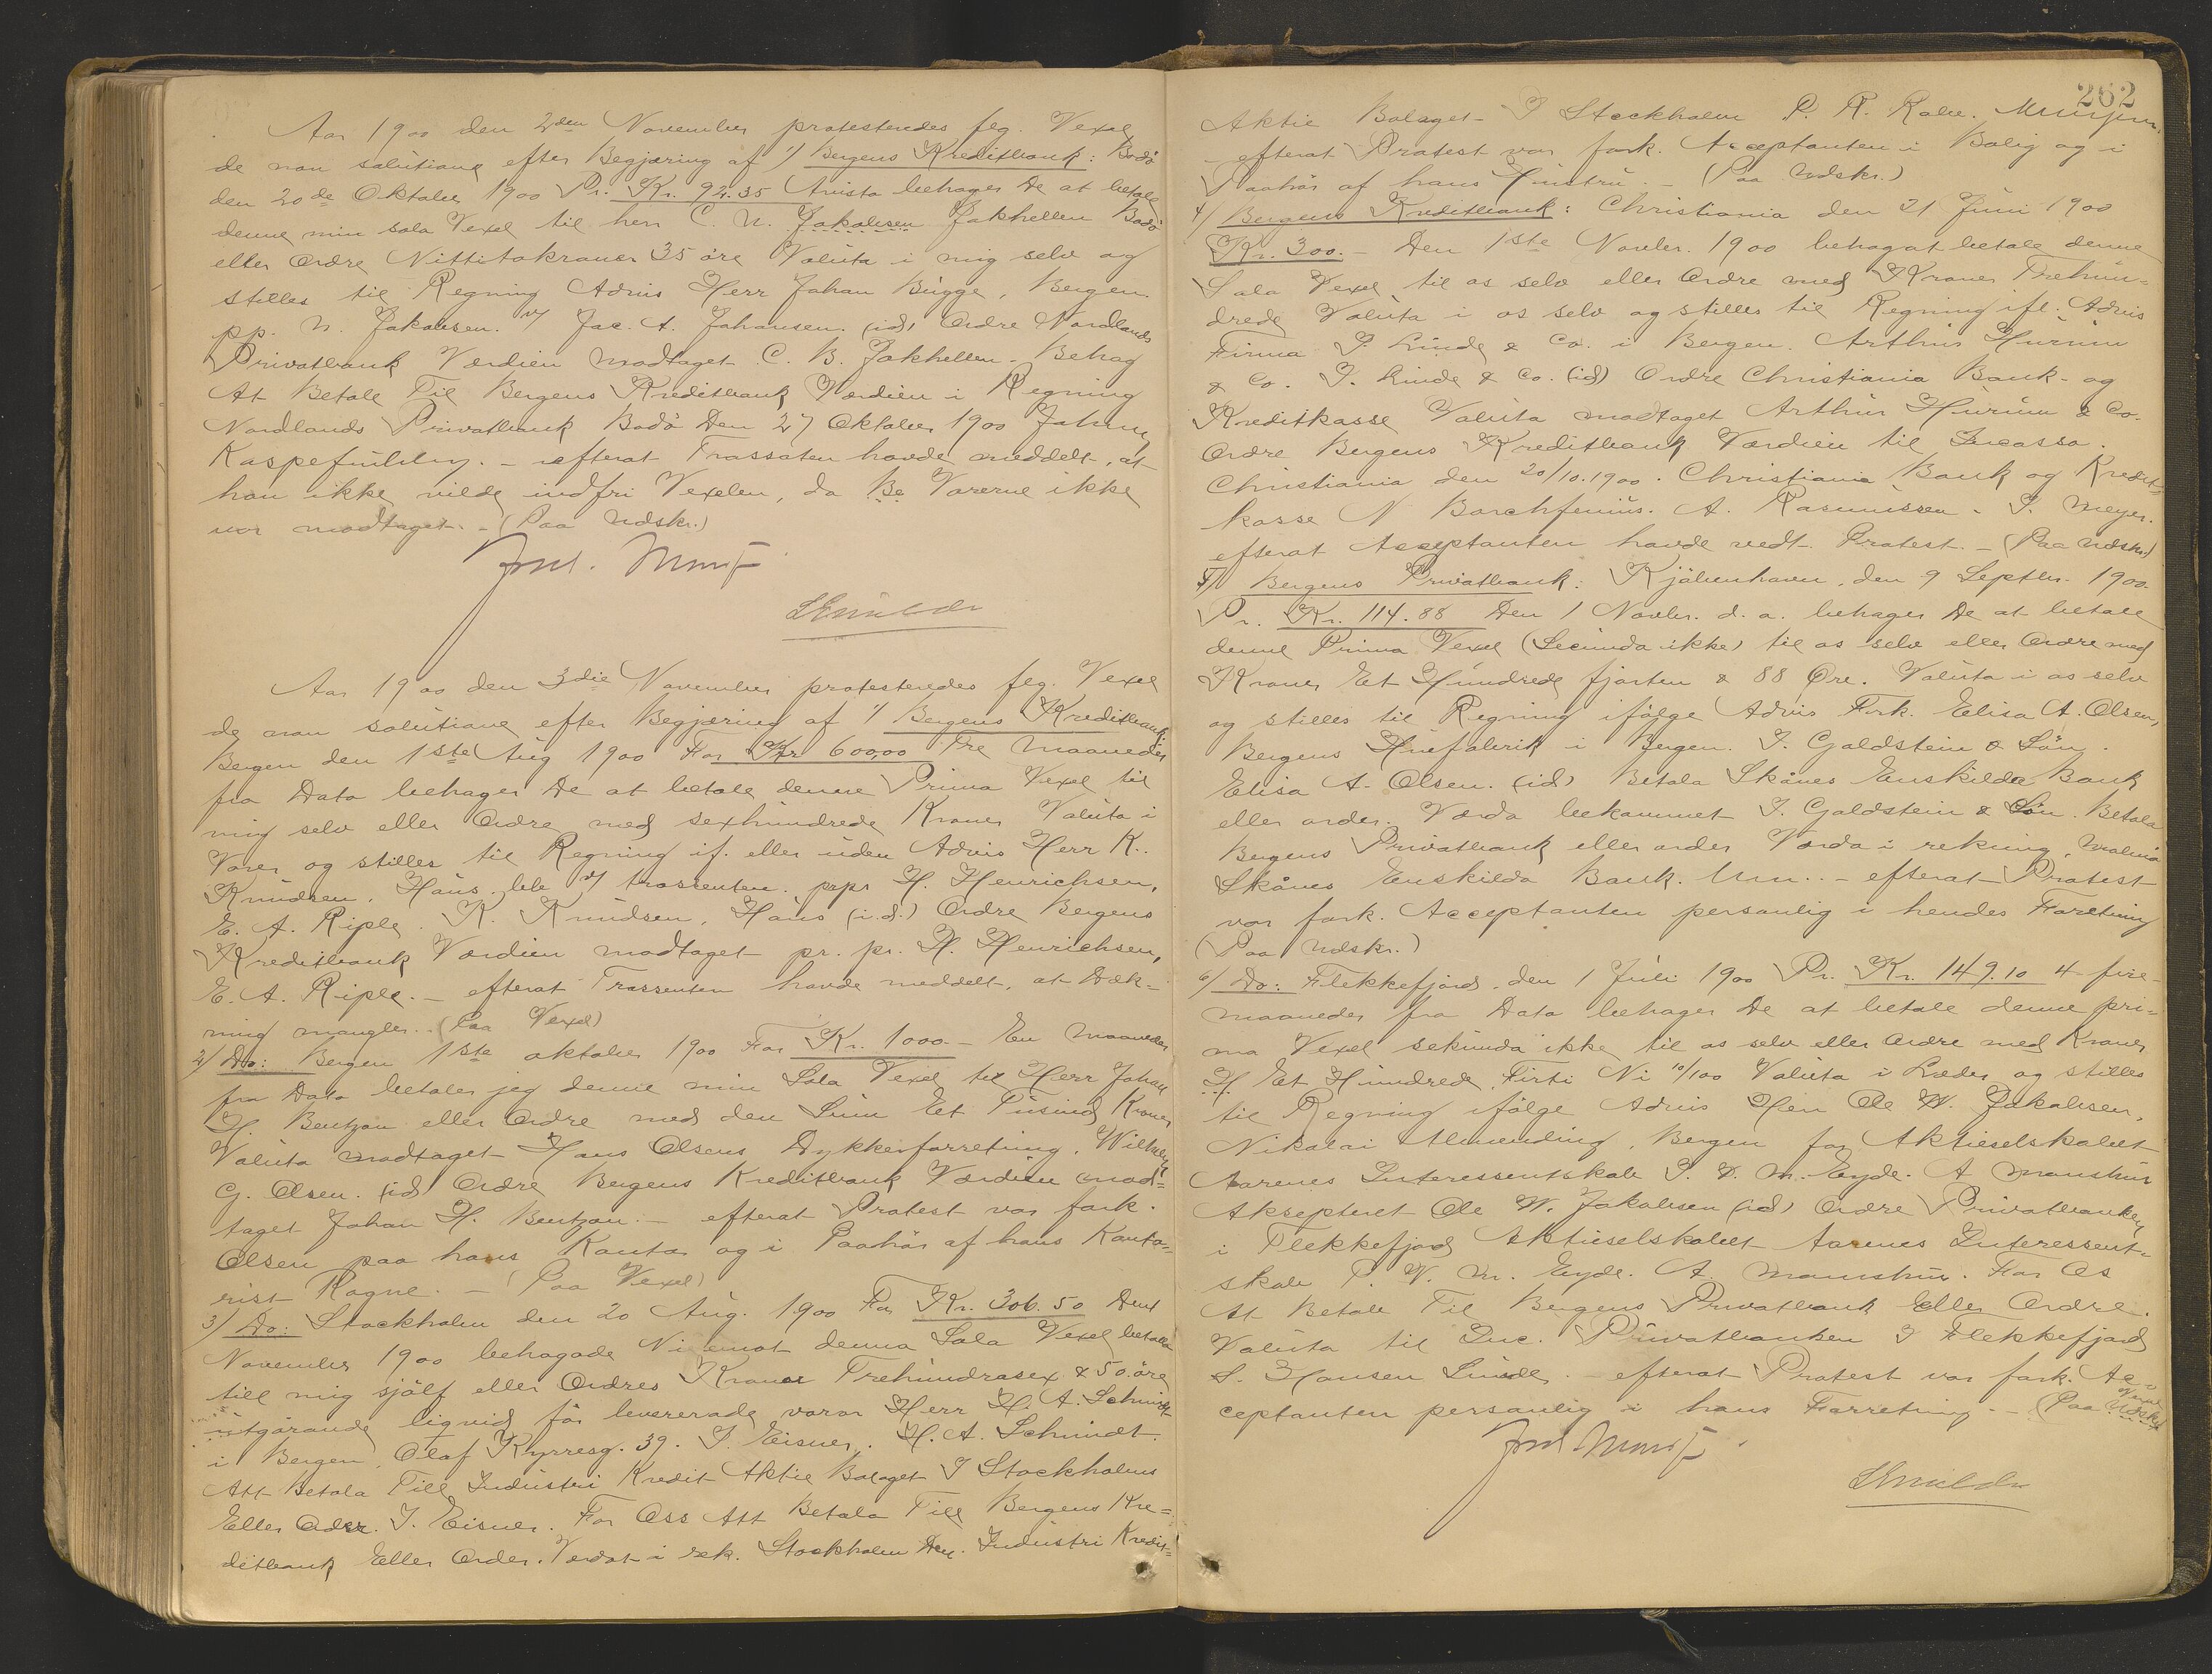 Aar 1900 den 2den November protesteredes flg. Vexel
de non solutione efter Begjæring af 1/ Bergens Kreditbank: Bodö
den 20de Oktober 1900 Pr. Kr. 92.35 Avista behager De at betale
denne min sola Vexel til herr C. N. Jakobsen Jakhellen Bodö
eller Ordre Nittitokroner 35 öre Valuta i mig selv og
stilles til Regning Advis Herr Johan Bügge, Bergen.
pp. N. Jakobsen. v/ Jac. A. Johansen. (id) Ordre Nordlands
Privatbank Værdien modtaget C. B. Jakhellen. Behag
At Betale Til Bergens Kreditbank Værdien i Regning
Nordlands Privatbank Bodö Den 27 Oktober 1900
- efterat Trassaten havde meddelt, at
han ikke vilde indfri Vexelen, da Be Varerne ikke
var modtaget. - (Paa Udskr.)
Aar 1900 den 3die November protesteredes flg. Vexel
de non solutione efter Begjæring af 1/ Bergens Kreditbank:
Bergen den 1ste Aug 1900 For Kr 600,00 Tre Maaneder
fra Dato behager De at betale denne Prima Vexel til
mig selv eller Ordre med sexhundrede Kroner Valuta i
Varer og stilles til Regning if. eller uden Advis Herr K.
Knudsen, Haus. bet v/ trassenten. prpr H. Henrichsen,
E. A. Riple. K. Knudsen, Haus (i.d.) Ordre Bergens
Kreditbank Værdien modtaget pr. pr. H. Henrichsen,
E. A. Riple. - efterat Trassenten havde meddelt, at Dæk=
ning mangler. - (Paa Vexel)
2/ Do: Bergen 1ste oktober 1900 For Kr. 1000.- En Maaneder
fra Dato betaler jeg denne min Sola Vexel til Herr Johan
H. Bentzon eller Ordre med den Sum Et Tusind Kroner
Valuta modtaget Hans Olsens Dykkerforretning, Wilhelm
G. Olsen. (id) Ordre Bergens Kreditbank Værdien mod=
taget Johan H. Bentzon. - efterat Protest var fork.
Olsen paa hans Kontor og i Paahör af hans Konto=
rist Ragne. - (Paa Vexel)
3/ Do: Stockholm den 20 Aug. 1900 For Kr. 306.50 Den 1
November 1900 behagade Ni emot denna Sola Vexel betala
till mig sjölf eller Ordres Kronor Trehundrasex & 50 öre
utgörande liqvid för levererade varor Herr H. A. Schmidt
i Bergen, Olaf Kyrresg. 39. J. Eisner. H. A. Schmidt.
Att Betala Till Industri Kredit Aktie Bolaget I Stockholms
Eller Order. J. Eisner. For Oss Att Betala Till Bergens Kre=
ditbank Eller Order. Verdat i rek. Stockholm Den. Industri Kredit=
262
Aktie Bolaget I Stockholm P. R. Rabe.
- efterat Protest var fork. Acceptanten i Bolig og i
Paahör af hans Hustru. - (Paa Udskr.)
4/ Bergens Kreditbank: Christiania den 21 Juni 1900
Kr. 300.- Den 1ste Novbr. 1900 behagat betale denne
Sola Vexel til os selv eller Ordre med Kroner Trehun=
drede Valuta i os selv og stilles til Regning ifl. Advis
Firma J. Linde & Co. i Bergen. Arthur Hurum
& Co. J. Linde & Co. (id) Ordre Christiania Bank- og
Kreditkasse Valuta modtaget Arthur Hurum & Co.
Ordre Bergens Kreditbank Værdien til Incasso.
Christiania den 20/10.1900. Christiania Bank og Kredit=
kasse N Borchfenius. A. Rasmussen. J. Meyer.
efterat Acceptanten havde vedt. Protest. - (Paa Udskr.)
5/ Bergens Privatbank: Kjöbenhavn, den 9 Septbr. 1900.
Pr. Kr. 114.88 Den 1 Novbr. d. a. behager De at betale
denne Prima Vexel (Secunda ikke) til os selv eller Ordre med
Kroner Et Hundrede fjorten & 88 Øre. Valuta i os selv
og stilles til Regning ifölge Advis Frk. Elisa A. Olsen,
Bergens Huefabrik i Bergen. J. Goldstein & Sön.
Elisa A. Olsen. (id) Betala Skånes Enskilda Bank
eller order. Värda bekommet J. Goldstein & Sön. Betala
Bergens Privatbank eller order Värda i rekning, Malmö
Skånes Enskilda Bank. - efterat Protest
var fork. Acceptanten personlig i hendes Foretning
(Paa Udskr.)
6/ Do: Flekkefjord, den 1 Juli 1900 Pr. Kr. 149.10 4 fire
maaneder fra Dato behager De at betale denne pri=
ma Vexel sekunda ikke til os selv eller Ordre med Kroner
H Et Hundrede Firti Ni 10/100 Valuta i Læder og stilles
til Regning ifölge Advis Herr Ole W. Jakobsen,
Nikolai Almending, Bergen for Aktieselskabet
Aarenes Interessentskab P. W. M. Eyde. A Monshus
Aksepteret Ole W. Jakobsen (id) Ordre Privatbanken
i Flekkefjord Aktieselskabet Aarenes Interessent=
skab P. W. M. Eyde. A. Monshus. For Os
At Betale Til Bergens Privatbank Eller Ordre.
Valuta til Inc. Privatbanken I Flekkefjord
S. Hansen Sunde. - efterat Protest var fork. Ac=
ceptanten personlig i hans Forretning. - (Paa Udskr Vexel